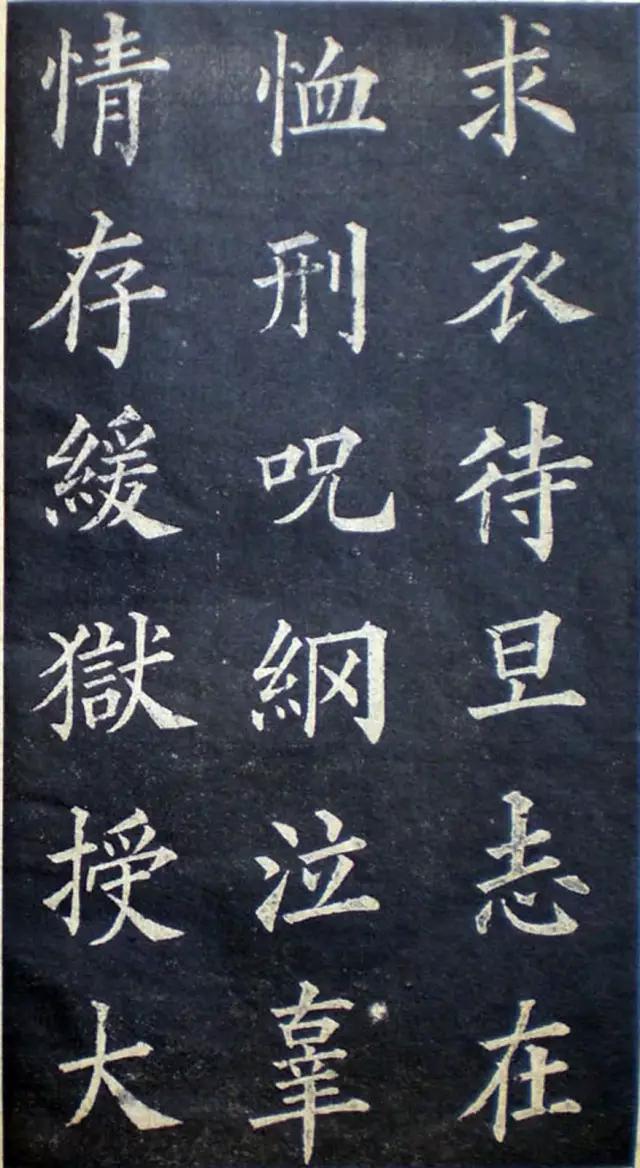 求衣待旦志在
恤刑呪網泣辜
情存緩獄授大